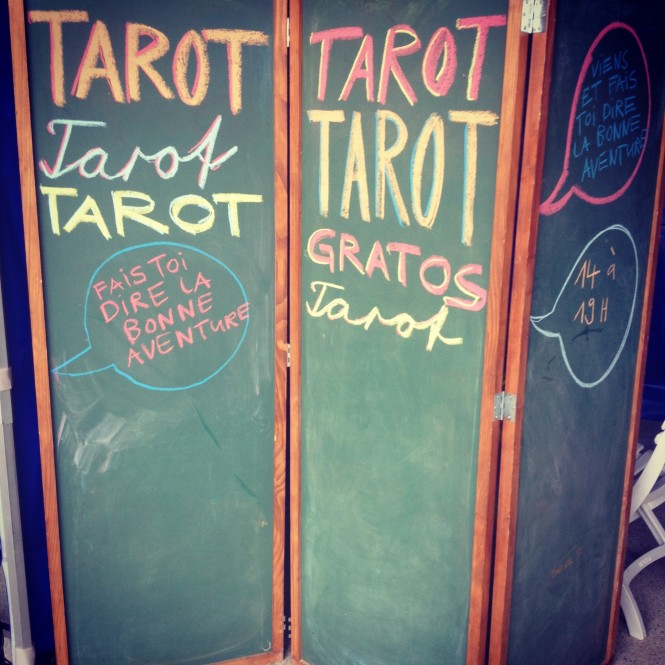 TAROT
Tarot
TAROT
FAIS TOI
DIRE LA
BONNE
AVENTURE
TAROT
TAROT
GRATOS
Tarot
VIENS
ET FAIS
TOI DIRE
LA BONNE
AVENTURE
14 à
19H